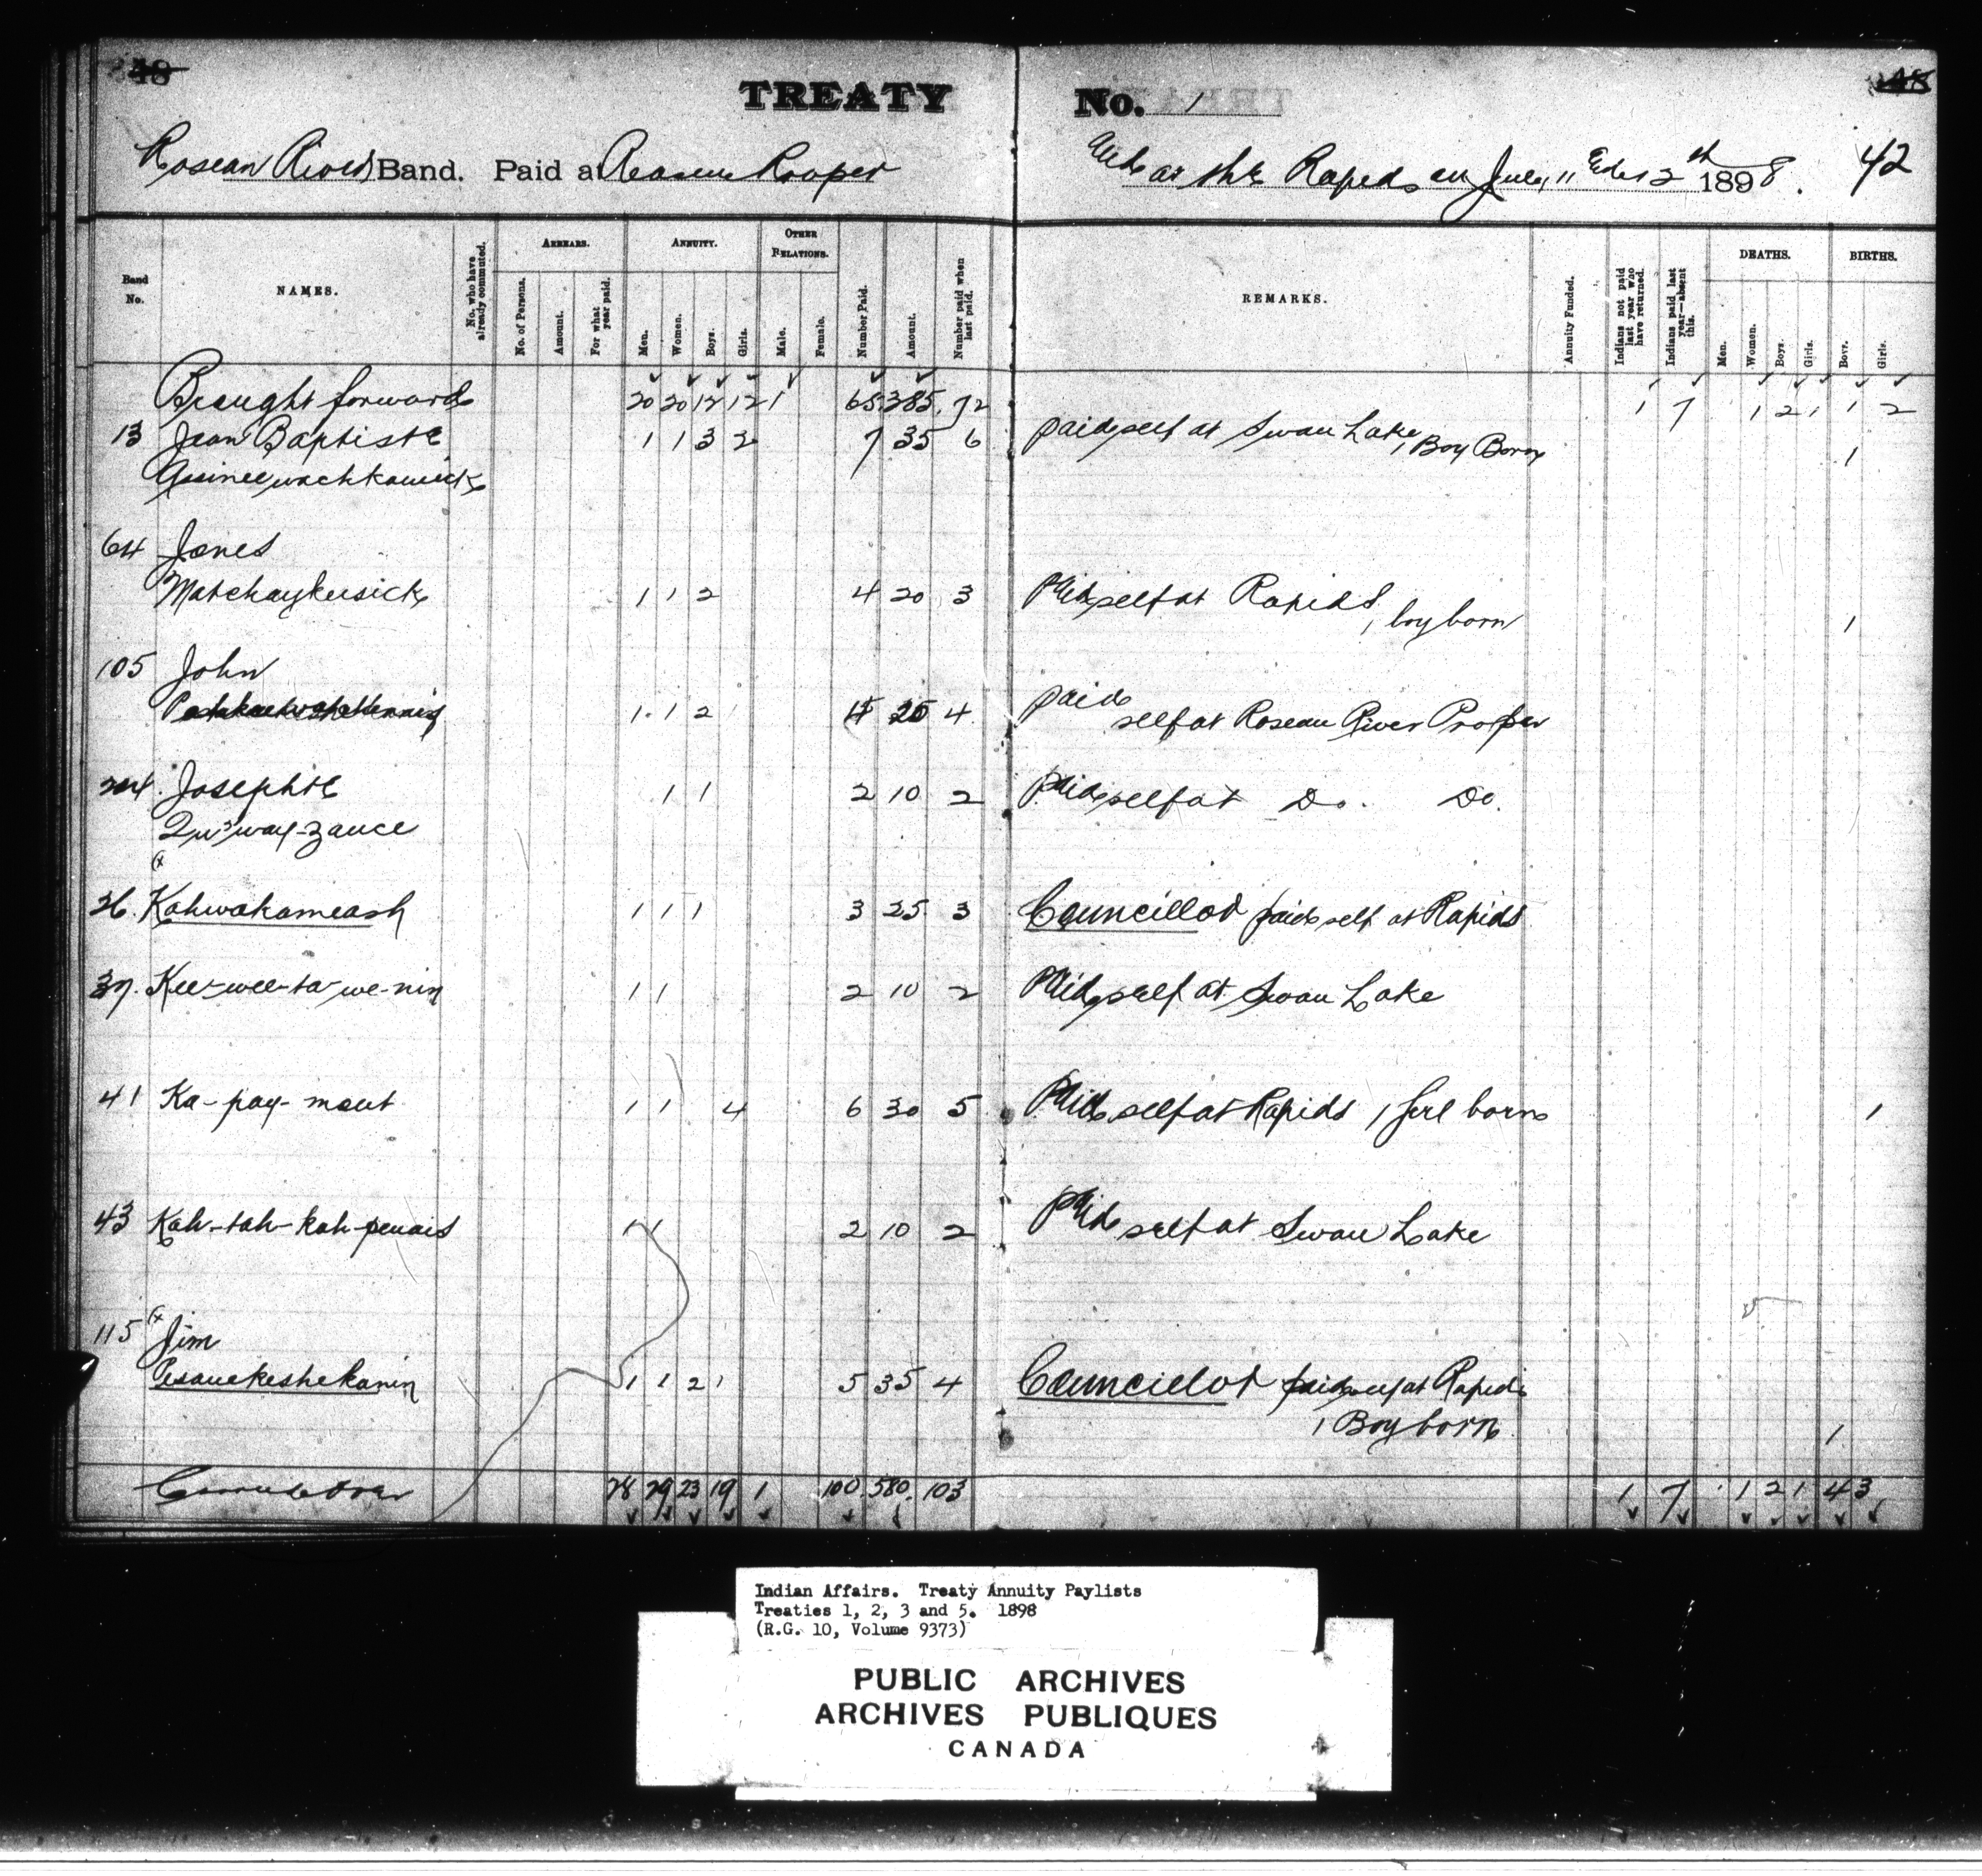 48
TREATY No. 1
48
Roseau River Band. Paid at Roseau Proper
and at the Rapids on July 11 & 12th 1898. 42
Band No.
NAMES.
No. who have already commuted.
ARREARS.
No. of Persons.
Amount.
For what year paid.
ANNUITY.
Men.
Women.
Boys.
Girls.
OTHER RELATIONS.
Male.
Female.
Number Paid.
Amount.
Number paid when last paid.
REMARKS.
Annuity Funded.
Indians not paid last year who have returned.
Indians paid last year—absent this.
DEATHS.
Men.
Women.
Boys.
Girls.
BIRTHS.
Boys.
Girls.
Brought forward 20 20 12 12 1 65 385 72 1 7 1 2 1 1 2
13 Jean Baptiste 1 1 3 2 7 35 6 paid self at Swan Lake, 1 Boy Born 1
64 James
Matchaykeesick 1 1 2 4 20 3 Paid self at Rapids
1 boy born 1
105 John
1 1 2 4 20 4 paid
self at Roseau River Proper
Josephte 1 1 2 10 2 Paid self at Do. Do.
Qui way-zance
36. Kahwakomeash 1 1 1 3 25 3 Councillor paid self at Rapids
37. Kee-wee-ta-we-nin 1 1 2 10 2 Paid self at Swan Lake
41 Ka-pay-mout 1 1 4 6 30 5 Paid self at Rapids 1 girl born 1
43 Kah-tah-kah-penais 1 1 2 10 2 Paid self at Swan Lake
115 Jim
Pesauekeshekanin 1 1 2 1 5 35 4 Councillor paid self at Rapids
1 Boy born 1
Carried over 28 29 23 19 1 100 580 103 1 7 1 2 1 4 3
Indian Affairs. Treaty Annuity Paylists
Treaties 1, 2, 3 and 5. 1898
(R.G. 10, Volume 9373)
PUBLIC ARCHIVES
ARCHIVES PUBLIQUES
CANADA